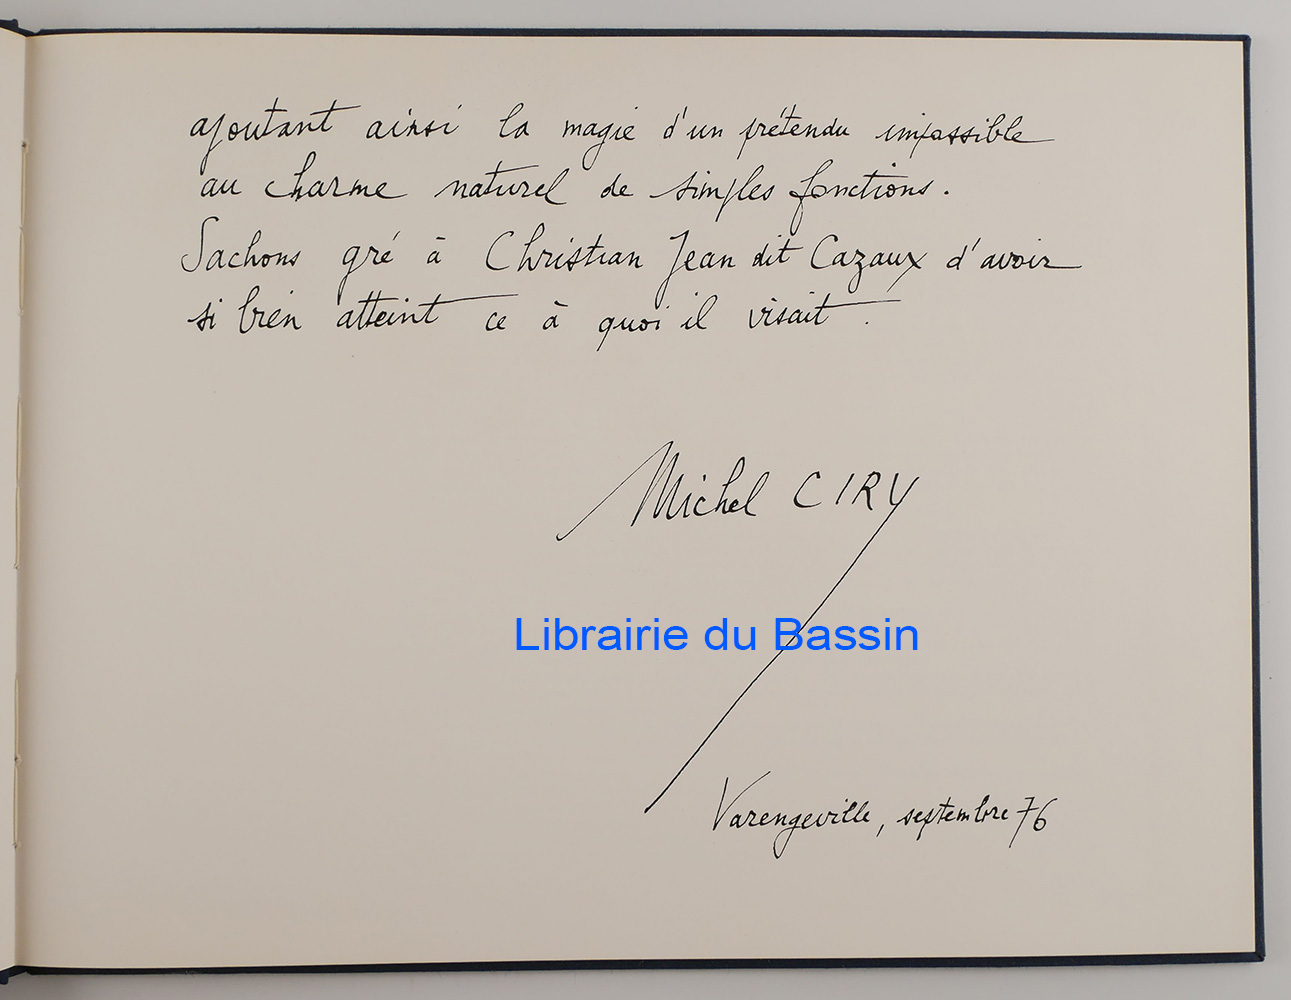 ajoutant ainsi la magie d'un prétendu impassible
au charme naturel de simples fonctions.
Sachons gré à Christian Jean dit Cazaux d'avoir
si bien atteint ce à quoi il visait.
Michel CIRY
Librairie du Bassin
Varengeville, septembre 76